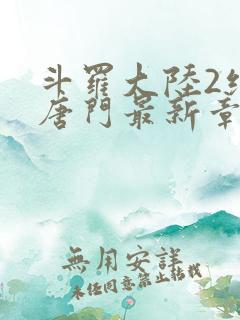 斗羅大陸2絕
唐門最新章
無用安詳
未經同意禁止轉載